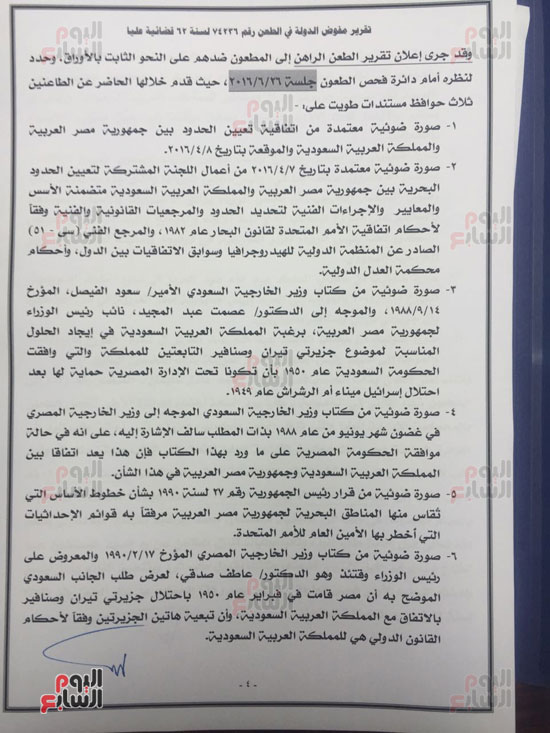 تقرير مفوض الدولة في الطعن رقم ٧٤٢٣٦ لسنة ٦٢ قضائية عليا
وقد جرى إعلان تقرير الطعن الراهن إلى المطعون ضدهم على النحو الثابت بالأوراق، وحدد
لنظره أمام دائرة فحص الطعون جلسة ٢٠١٦/٦/٢٦، حيث قدم خلالها الحاضر عن الطاعنين
ثلاث حوافظ مستندات طويت على: -
١- صورة ضوئية معتمدة من اتفاقية تعيين الحدود بين جمهورية مصر العربية
والمملكة العربية السعودية والموقعة بتاريخ ٢٠١٦/٤/٨.
٢- صورة ضوئية معتمدة بتاريخ ٢٠١٦/٤/٧ من أعمال اللجنة المشتركة لتعيين الحدود
البحرية بين جمهورية مصر العربية والمملكة العربية السعودية متضمنة الأسس
والمعايير والإجراءات الفنية لتحديد الحدود والمرجعيات القانونية والفنية وفقاً
لأحكام اتفاقية الأمم المتحدة لقانون البحار عام ١٩٨٢، والمرجع الفني (سي - ٥١)
الصادر عن المنظمة الدولية للهيدروجرافيا وسوابق الاتفاقيات بين الدول، وأحكام
محكمة العدل الدولية.
٣- صورة ضوئية من كتاب وزير الخارجية السعودي الأمير/ سعود الفيصل، المؤرخ
١٩٨٨/٩/١٤، والموجه إلى الدكتور/ عصمت عبد المجيد، نائب رئيس الوزراء
لجمهورية مصر العربية، برغبة المملكة العربية السعودية في إيجاد الحلول
المناسبة لموضوع جزيرتي تيران وصنافير التابعتين للمملكة والتي وافقت
الحكومة السعودية عام ١٩٥٠ بأن تكونا تحت الإدارة المصرية حماية لها بعد
احتلال إسرائيل ميناء أم الرشراش عام ١٩٤٩.
٤- صورة ضوئية من كتاب وزير الخارجية السعودي الموجه إلى وزير الخارجية المصري
في غضون شهر يونيو من عام ١٩٨٨ بذات المطلب سالف الإشارة إليه، على انه في حالة
موافقة الحكومة المصرية على ما ورد بهذا الكتاب فإن هذا يعد اتفاقا بين
المملكة العربية السعودية وجمهورية مصر العربية في هذا الشأن.
٥- صورة ضوئية من قرار رئيس الجمهورية رقم ٢٧ لسنة ١٩٩٠ بشأن خطوط الأساس التي
تُقاس منها المناطق البحرية لجمهورية مصر العربية مرفقاً به قوائم الإحداثيات
التي أخطر بها الأمين العام للأمم المتحدة.
٦- صورة ضوئية من كتاب وزير الخارجية المصري المؤرخ ١٩٩٠/٢/١٧ والمعروض على
رئيس الوزراء وقتئذ وهو الدكتور/ عاطف صدقي، لعرض طلب الجانب السعودي
الموضح به أن مصر قامت في فبراير عام ١٩٥٠ باحتلال جزيرتي تيران وصنافير
بالاتفاق مع المملكة العربية السعودية، وأن تبعية هاتين الجزيرتين وفقاً لأحكام
القانون الدولي هي للمملكة العربية السعودية.
- ٤ -
اليوم السابع